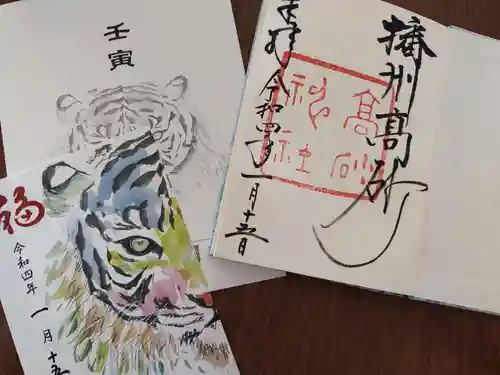 壬寅
福
令和四年
一月十五
播州高砂
高砂
神社
走拝
令和四年
一月十五日